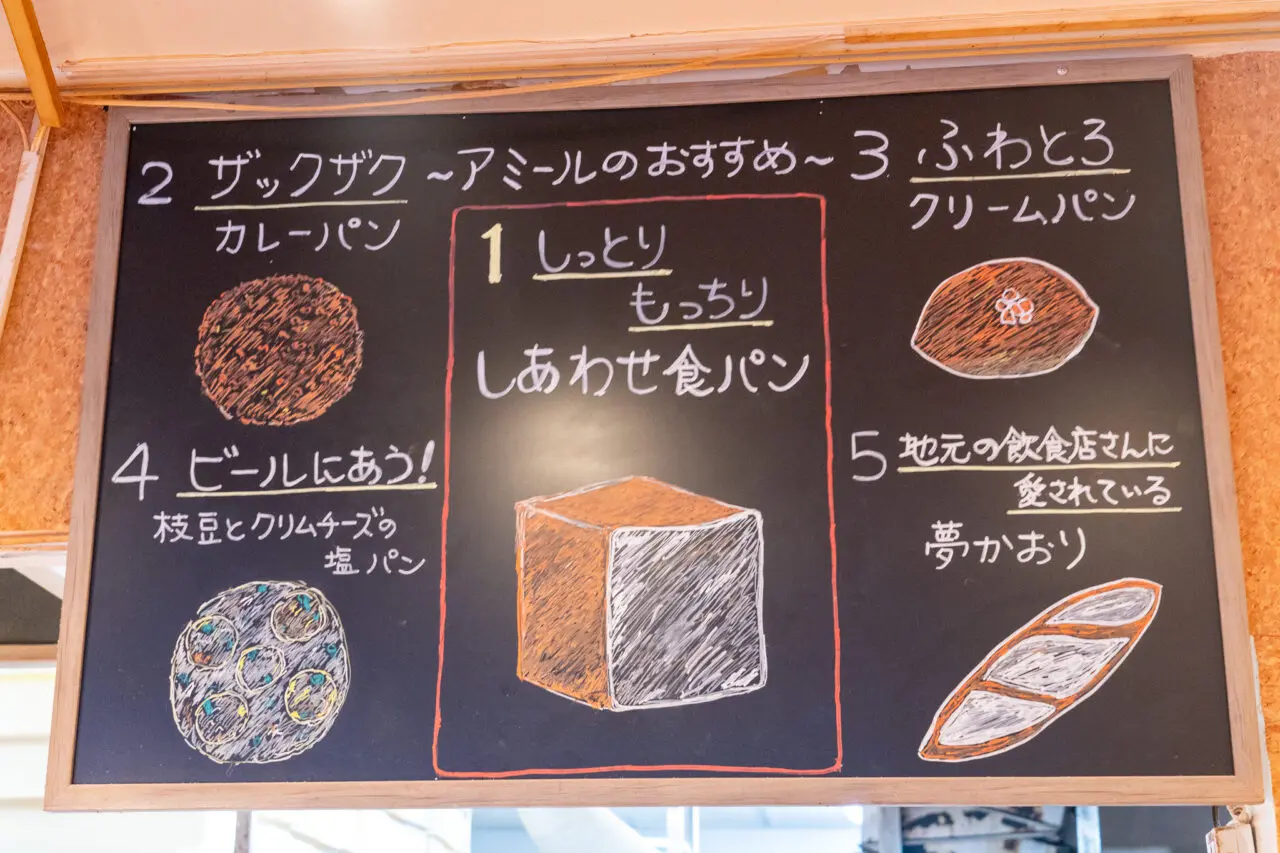 ～アミールのおすすめ～
1 しっとり
もっちり
しあわせ食パン
2 ザックザク
カレーパン
3 ふわとろ
クリームパン
4 ビールにあう!
枝豆とクリムチーズの
塩パン
5 地元の飲食店さんに
愛されている
夢かおり